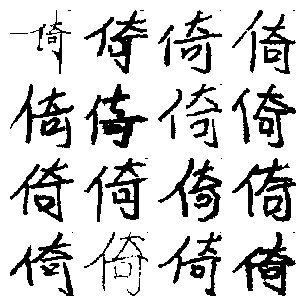 倚倚倚倚
倚倚倚倚
倚倚倚倚
倚倚倚倚